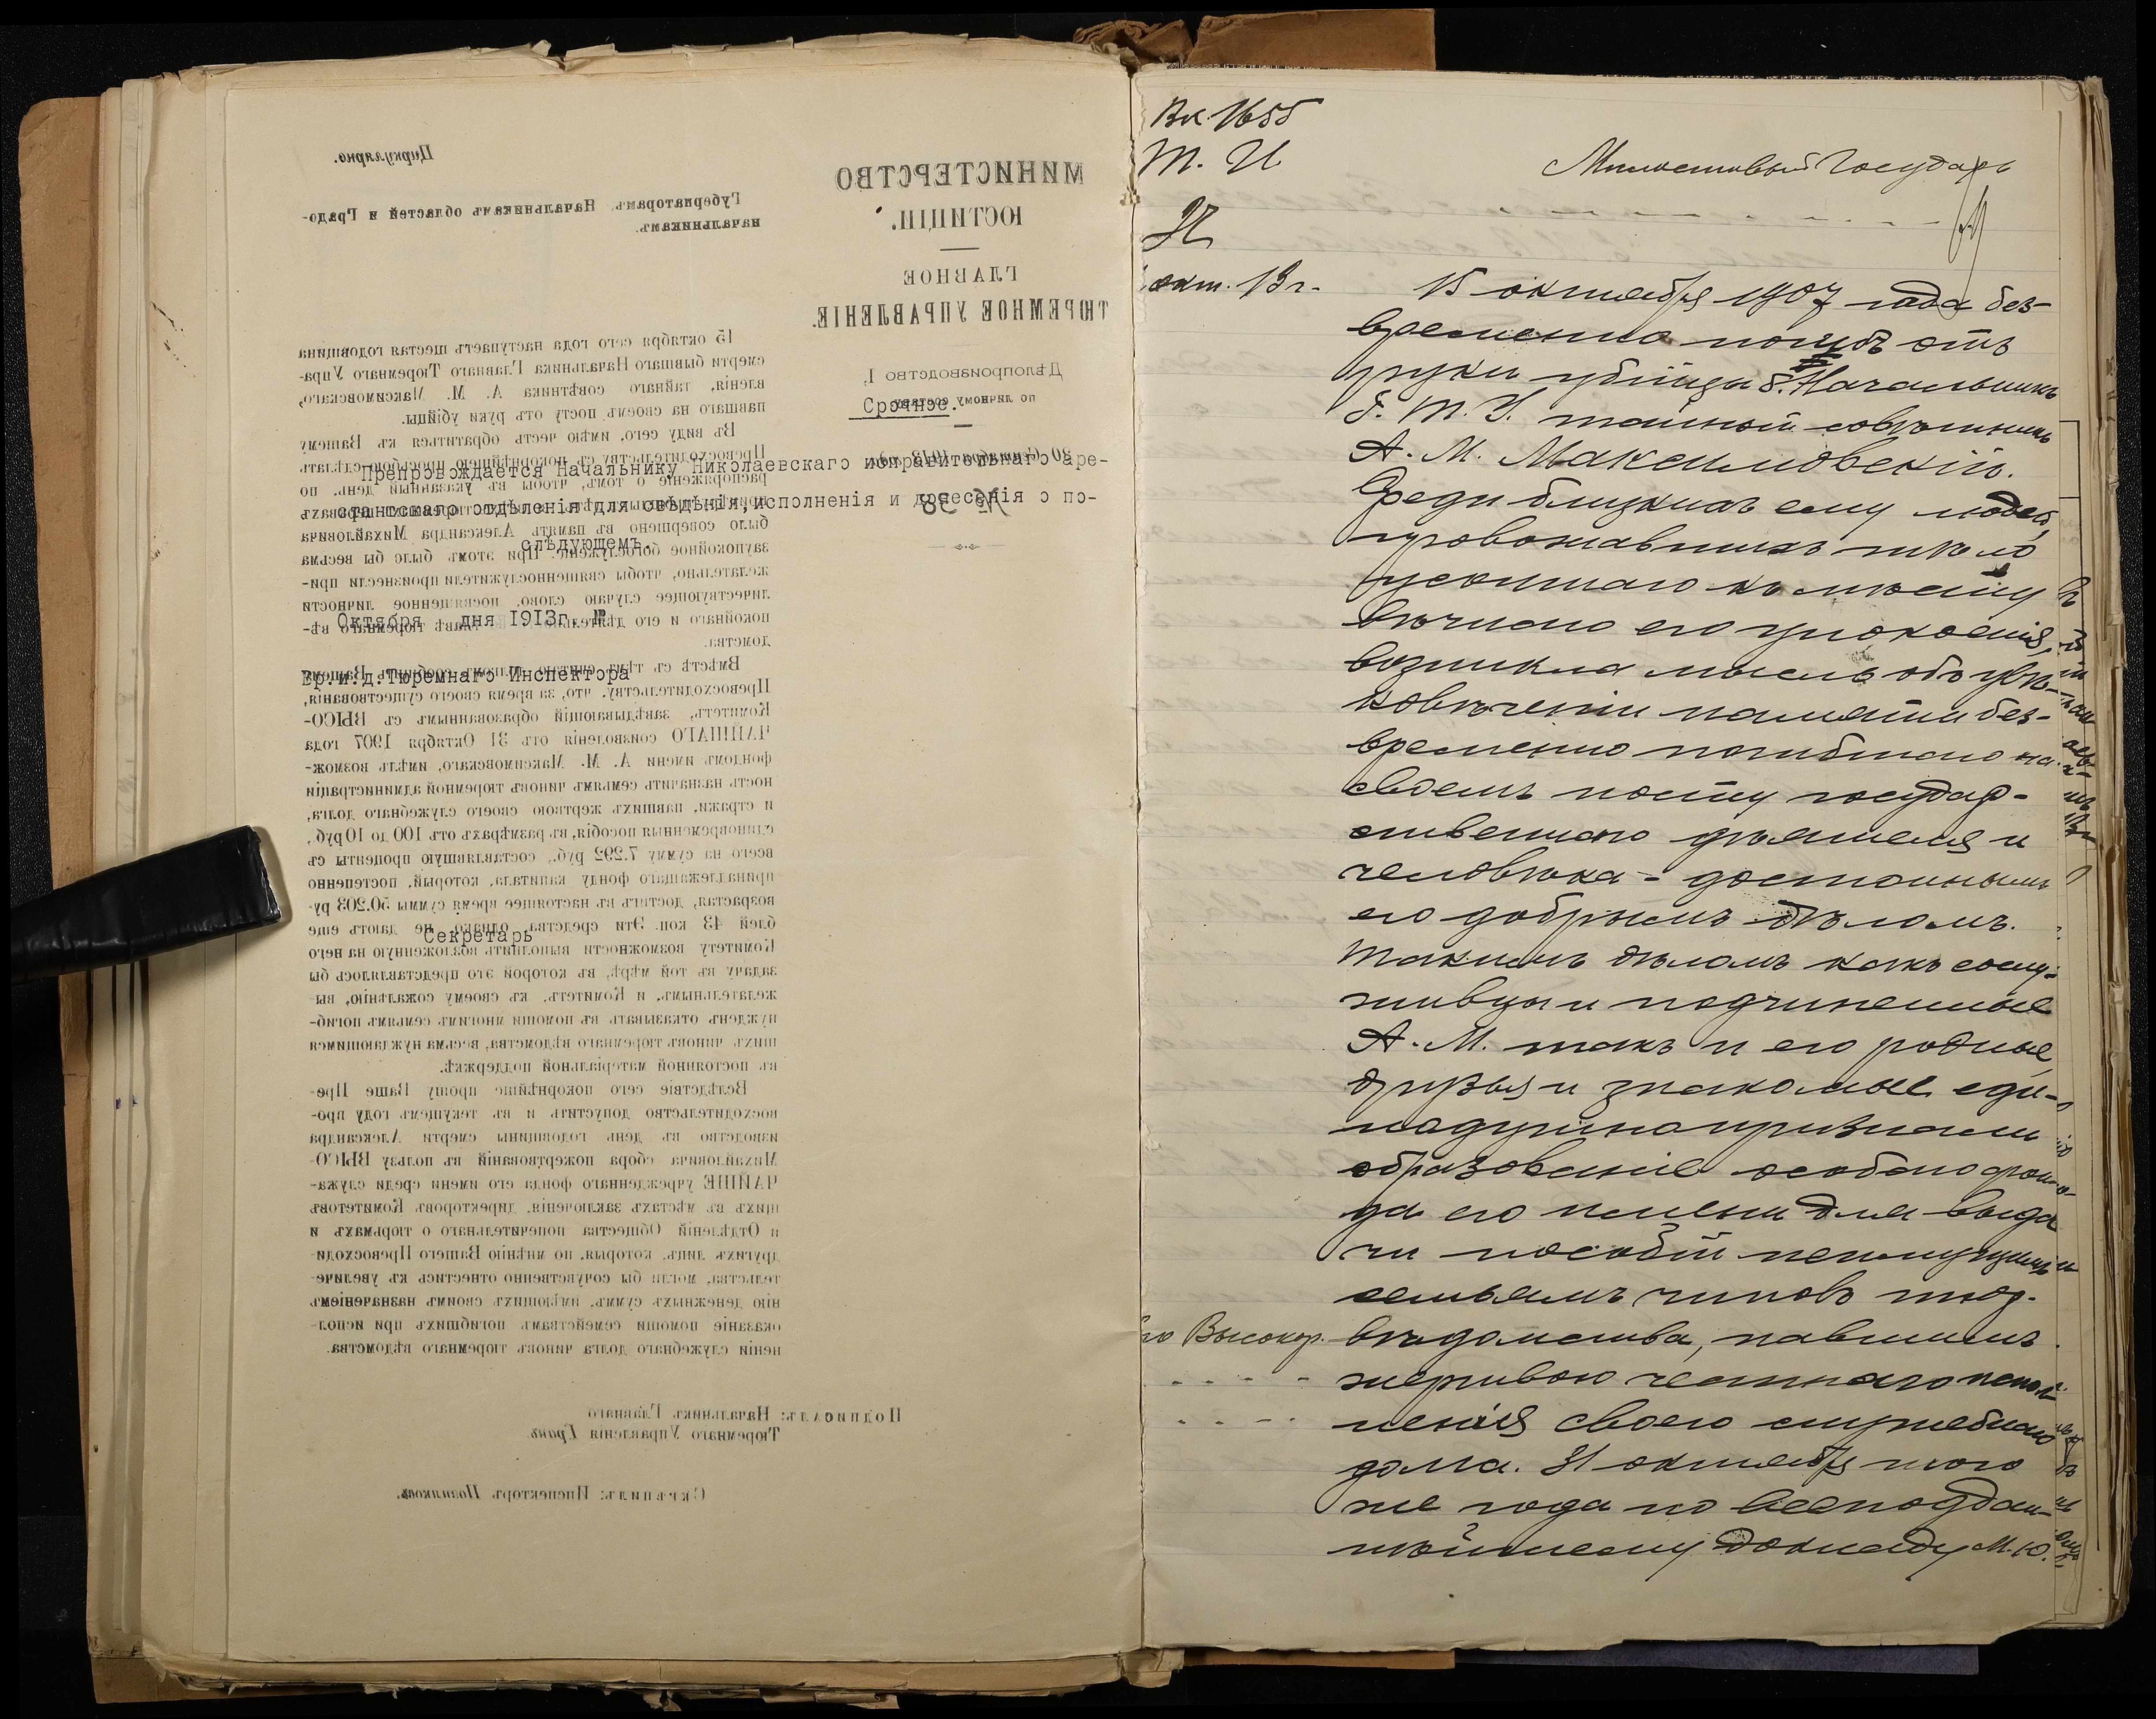 Циркулярно.
МИНИСТЕРСТВО
ЮСТИЦІИ.
ГЛАВНОЕ
ТЮРЕМНОЕ УПРАВЛЕНІЕ.
Дѣлопроизводство I,
по личному составу.
Срочное.
30 Сентября 1913 г.
№ 38
Губернаторамъ, Начальникамъ областей и Градо-
начальникамъ.
15 октября сего года наступаетъ шестая годовщина
смерти бывшаго Начальника Главнаго Тюремнаго Упра-
вленія, тайнаго совѣтника А. М. Максимовскаго,
павшаго на своемъ посту отъ руки убійцы.
Въ виду сего, имѣю честь обратиться къ Вашему
Превосходительству съ покорнѣйшею просьбою сдѣлать
распоряженіе о томъ, чтобы въ указанный день, по
было совершено въ память Александра Михайловича
заупокойное богослуженіе. При этомъ было бы весьма
желательно, чтобы священнослужители произнесли при-
личествующее случаю слово, посвященное личности
покойнаго и его дѣятельности во главѣ тюремнаго вѣ-
домства.
Вмѣстѣ съ тѣмъ считаю долгомъ сообщить Вашему
Превосходительству, что, за время своего существованія,
Комитетъ, завѣдывающій образованнымъ съ ВЫСО-
ЧАЙШАГО соизволенія отъ 31 Октября 1907 года
фондомъ имени А. М. Максимовскаго, имѣлъ возмож-
ность назначить семьямъ чиновъ тюремной администраціи
и стражи, павшихъ жертвою своего служебнаго долга,
единовременныя пособія, въ размѣрахъ отъ 100 до 10 руб.,
всего на сумму 7.292 руб., составлявшую проценты съ
принадлежащаго фонду капитала, который, постепенно
возрастая, достигъ въ настоящее время суммы 50.203 ру-
блей 43 коп. Эти средства, однако, не даютъ еще
Комитету возможности выполнить возложенную на него
задачу въ той мѣрѣ, въ которой это представлялось бы
желательнымъ, и Комитетъ, къ своему сожалѣнію, вы-
нужденъ отказывать въ помощи многимъ семьямъ погиб-
шихъ чиновъ тюремнаго вѣдомства, весьма нуждающимся
въ постоянной матеріальной поддержкѣ.
Вслѣдствіе сего покорнѣйше прошу Ваше Пре-
восходительство допустить и въ текущемъ году про-
изводство въ день годовщины смерти Александра
Михайловича сбора пожертвованій въ пользу ВЫСО-
ЧАЙШЕ учрежденнаго фонда его имени среди служа-
щихъ въ мѣстахъ заключенія, директоровъ Комитетовъ
и Отдѣленій Общества попечительнаго о тюрьмахъ и
другихъ лицъ, которыя, по мнѣнію Вашего Превосходи-
тельства, могли бы сочувственно отнестись къ увеличе-
нію денежныхъ суммъ, имѣющихъ своимъ назначеніемъ
оказаніе помощи семействамъ погибшихъ при испол-
неніи служебнаго долга чиновъ тюремнаго вѣдомства.
Подписалъ: Начальникъ Главнаго
Тюремнаго Управленія Гранъ.
Скрѣпилъ: Инспекторъ
Препровождается Начальнику Николаевскаго исправительнаго аре-
стантскаго отдѣленія для свѣдѣнія, исполненія и донесенія о по-
слѣдующемъ.
Октября дня 1913г. №
Вр.и.д.Тюремнаго Инспектора
Секретарь
Т. И
окт. 13 г.
Милостивый Государь
15 октября 1907 года без-
временно погибъ отъ
руки убійцы б. Начальникъ
Г. Т. У. тайный совѣтникъ
А. М. Максимовскій.
Среди близкихъ ему людей,
провожавшихъ тѣло
усопшаго къ мѣсту
вѣчнаго его упокоенія,
возникла мысль объ увѣ-
ковѣченіи памяти без-
временно погибшаго на
своемъ посту государ-
ственнаго дѣятеля и
человѣка - достойнымъ
его добрымъ дѣломъ.
Такимъ дѣломъ какъ сослу-
живцы и подчиненные
А. М. такъ и его родные,
друзья и знакомые еди-
нодушно признали
образованіе особаго фон-
да его имени для выда
чи пособій неимущимъ
семьямъ чиновъ тюр.
вѣдомства, павшимъ
жертвою честнаго испол-
ненія своего служебнаго
долга. 31 октября того
же года по всеподдан-
нѣйшему докладу М. Ю.
го Высокор.